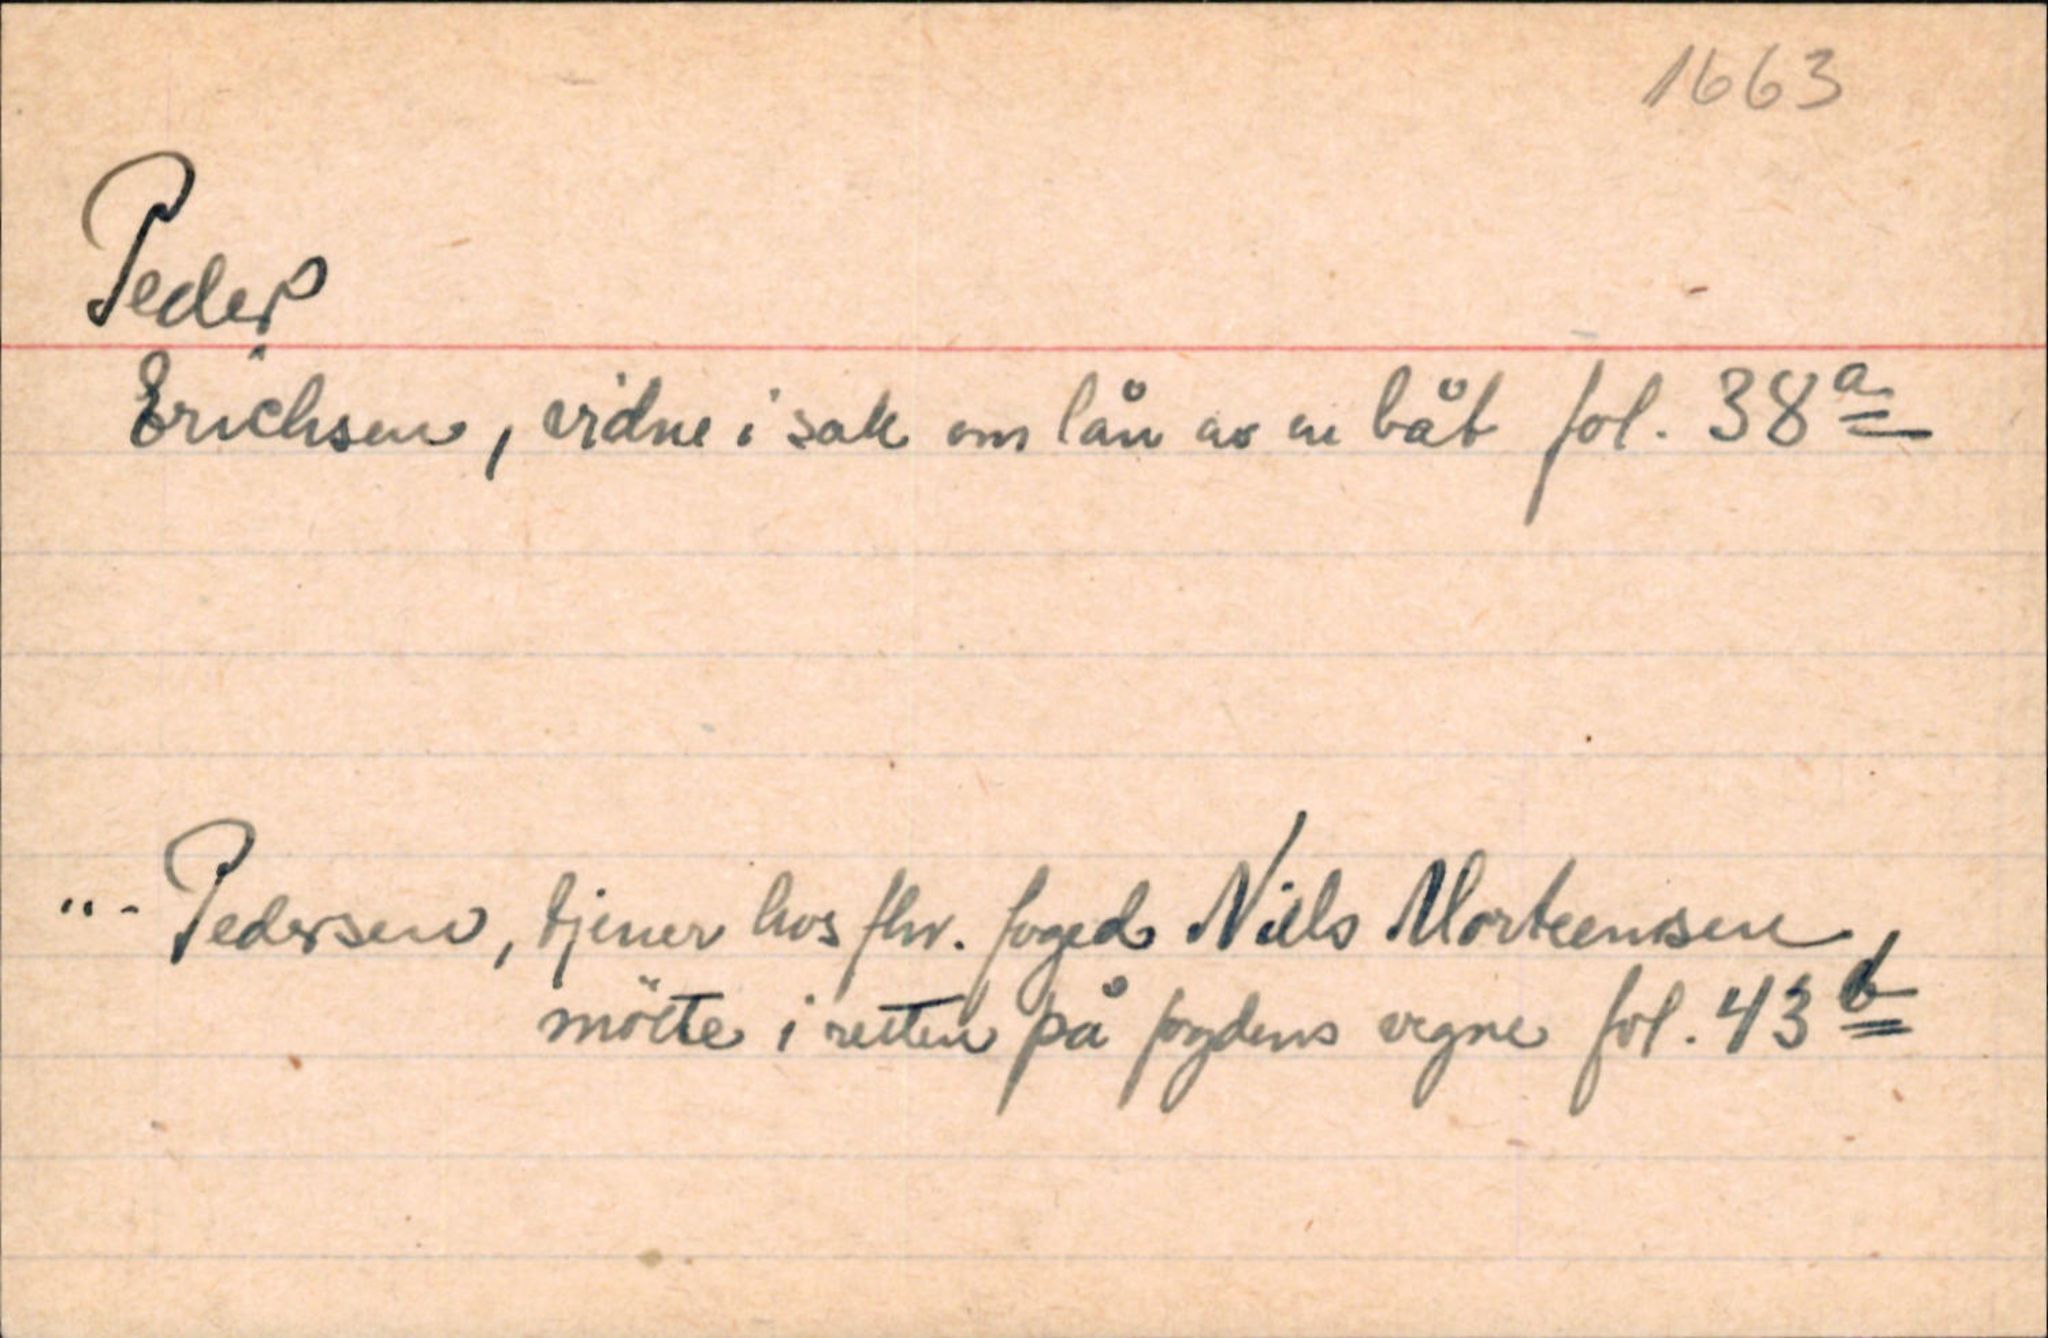 1663
Peder
Erichsen, vidne i sak om lån av en båt fol. 38ª
"- Pedersen, tjener hos fhv. foged Niels Morteensen,
mötte i retten på fogdens vegne fol. 43 b